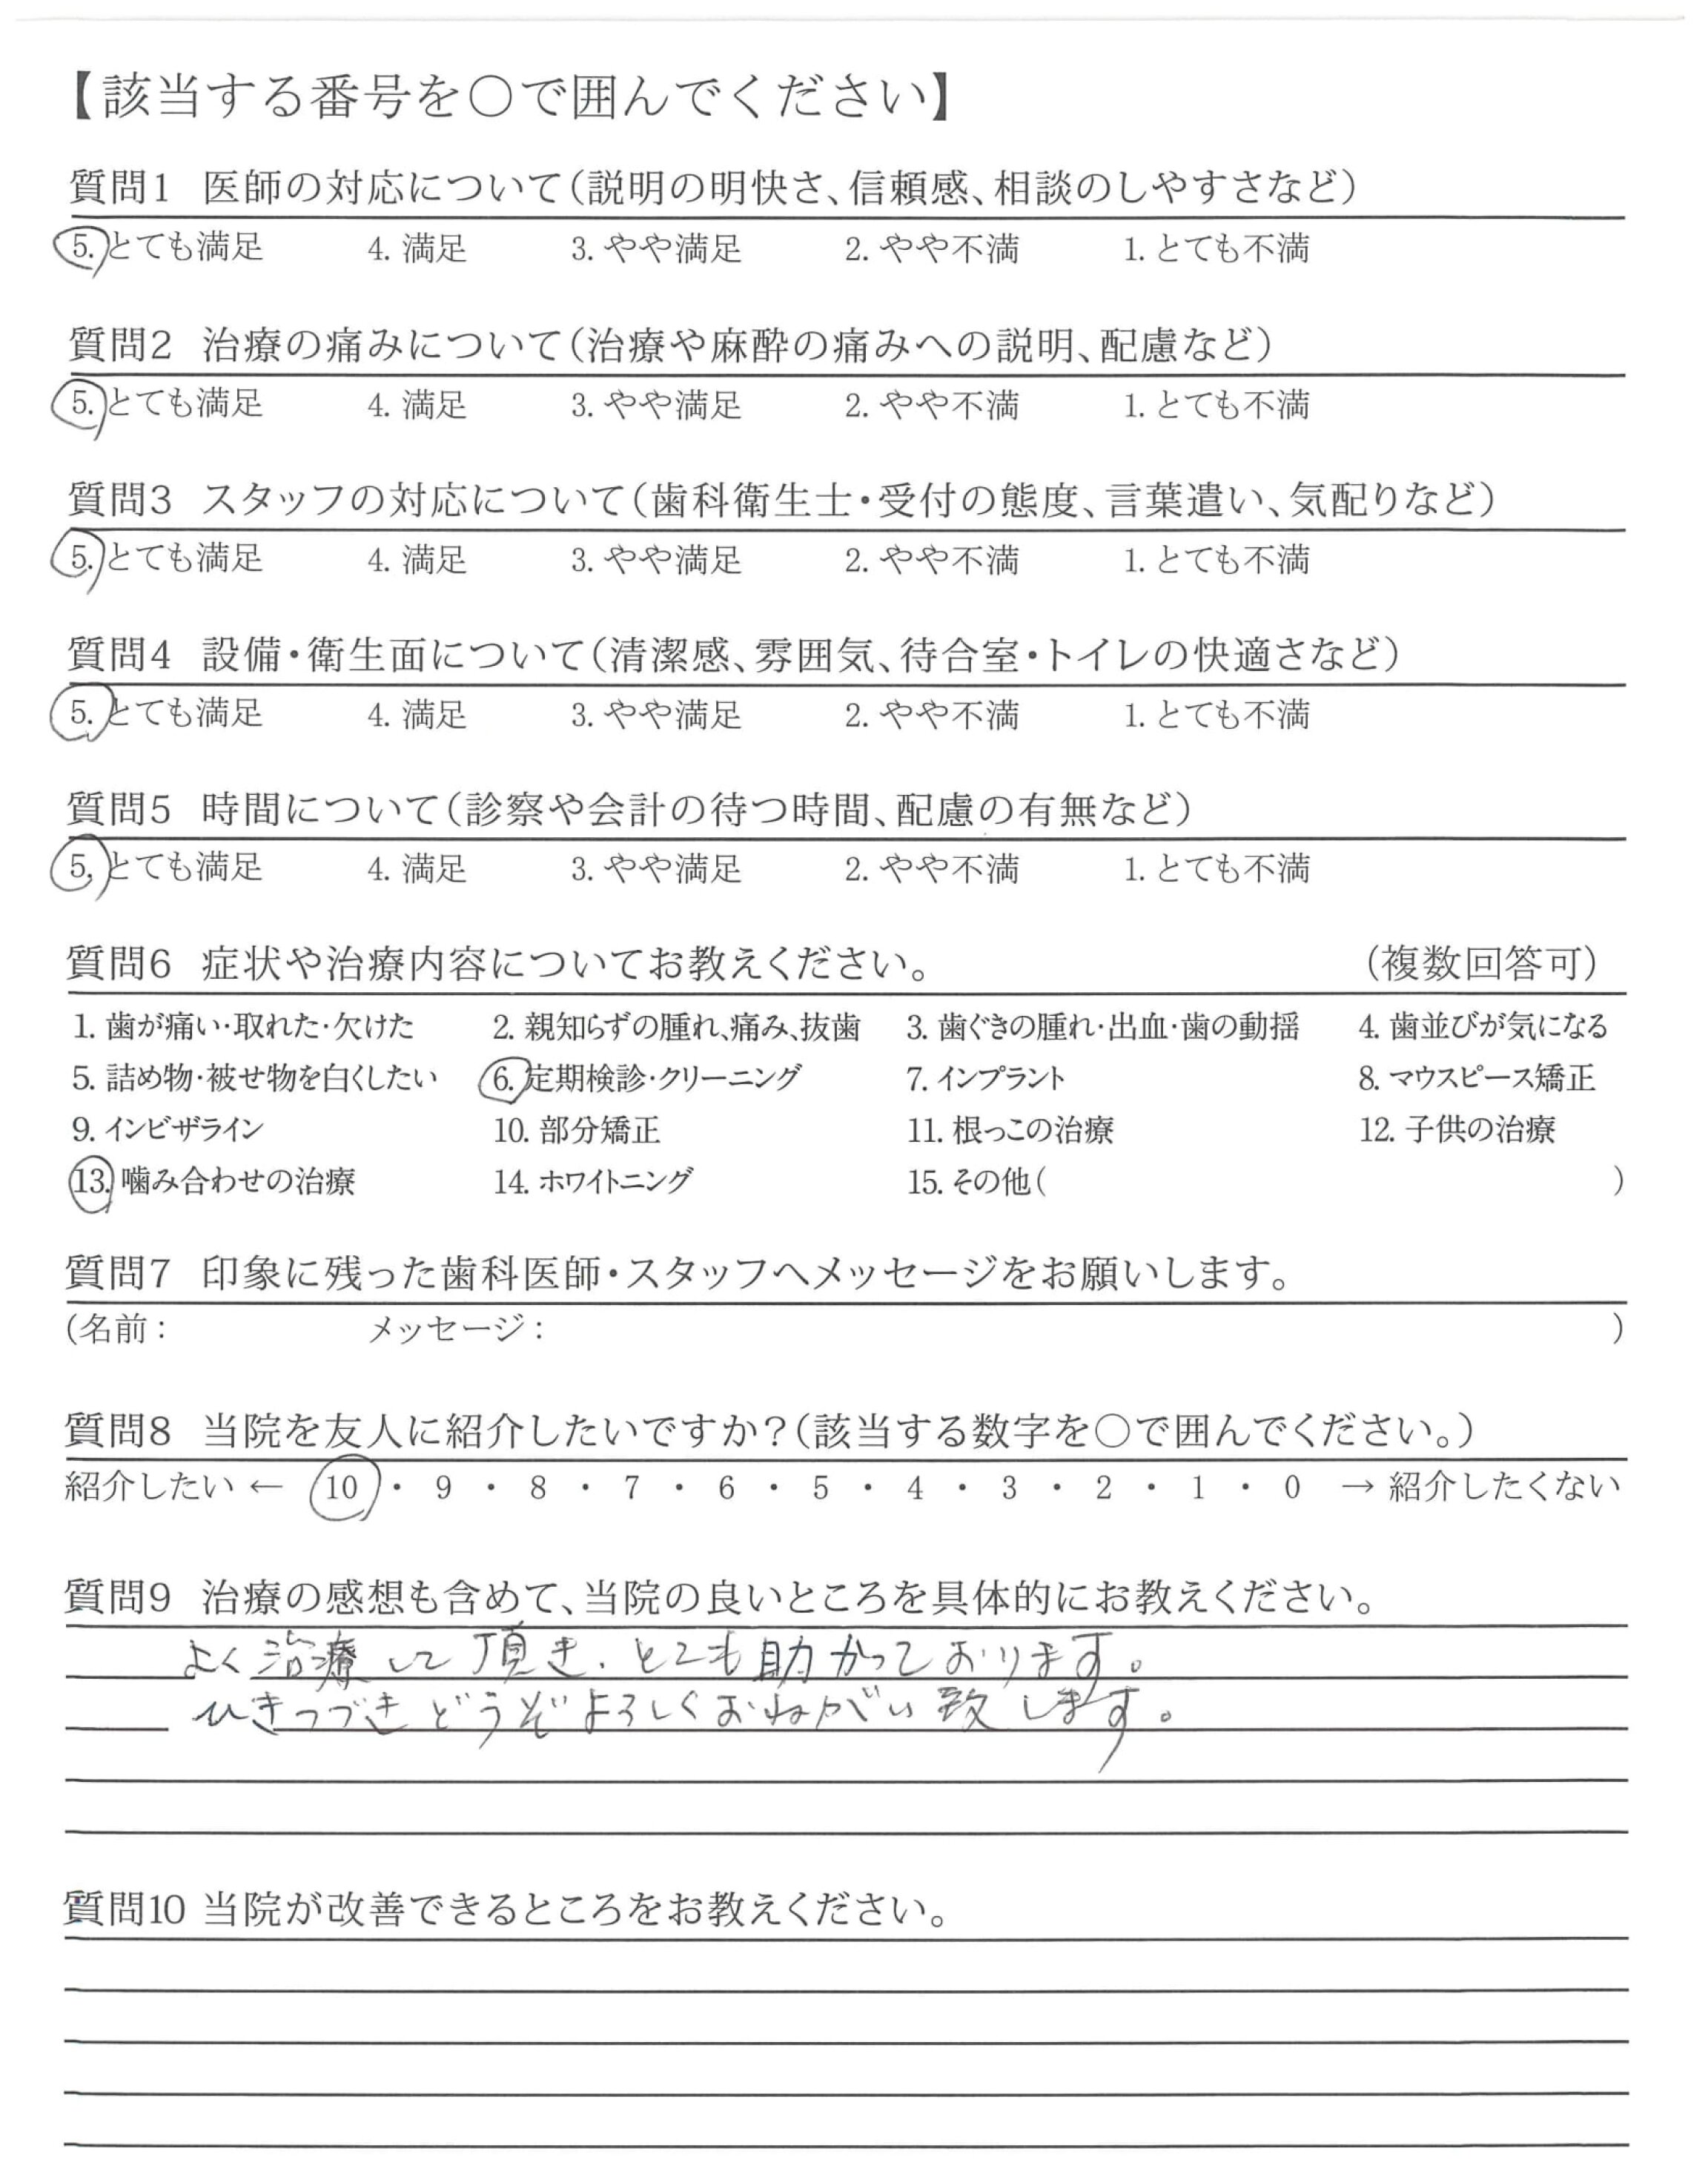 【該当する番号を〇で囲んでください】
質問1 医師の対応について(説明の明快さ、信頼感、相談のしやすさなど)
5. とても満足 4. 満足 3. やや満足 2. やや不満 1. とても不満
質問2 治療の痛みについて(治療や麻酔の痛みへの説明、配慮など)
5. とても満足 4. 満足 3. やや満足 2. やや不満 1. とても不満
質問3 スタッフの対応について(歯科衛生士・受付の態度、言葉遣い、気配りなど)
5. とても満足 4. 満足 3. やや満足 2. やや不満 1. とても不満
質問4 設備・衛生面について(清潔感、雰囲気、待合室・トイレの快適さなど)
5. とても満足 4. 満足 3. やや満足 2. やや不満 1. とても不満
質問5 時間について(診察や会計の待つ時間、配慮の有無など)
5. とても満足 4. 満足 3. やや満足 2. やや不満 1. とても不満
質問6 症状や治療内容についてお教えください。 (複数回答可)
1. 歯が痛い・取れた・欠けた 2. 親知らずの腫れ、痛み、抜歯 3. 歯ぐきの腫れ・出血・歯の動揺 4. 歯並びが気になる
5. 詰め物・被せ物を白くしたい 6. 定期検診・クリーニング 7. インプラント 8. マウスピース矯正
9. インビザライン 10. 部分矯正 11. 根っこの治療 12. 子供の治療
13. 噛み合わせの治療 14. ホワイトニング 15. その他( )
質問7 印象に残った歯科医師・スタッフへメッセージをお願いします。
(名前： メッセージ： )
質問8 当院を友人に紹介したいですか？(該当する数字を〇で囲んでください。)
紹介したい ← 10 ・ 9 ・ 8 ・ 7 ・ 6 ・ 5 ・ 4 ・ 3 ・ 2 ・ 1 ・ 0 → 紹介したくない
質問9 治療の感想も含めて、当院の良いところを具体的にお教えください。
よく治療して頂き、とても助かっております。
ひきつづきどうぞよろしくおねがい致します。
質問10 当院が改善できるところをお教えください。